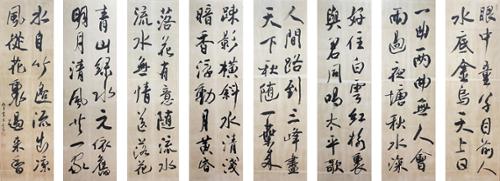 眼中童子目前人
水底金烏天上日
一曲兩曲無人會
雨過夜塘秋水深
好住白雲紅樹裏
與君同唱太平歌
人間路到三峰盡
天下秋隨一葉來
疎影橫斜水清淺
暗香浮動月黃昏
落花有意隨流水
流水無情送落花
青山綠水元依舊
明月清風共一家
水自竹邊流出涼
風從花裏過來香